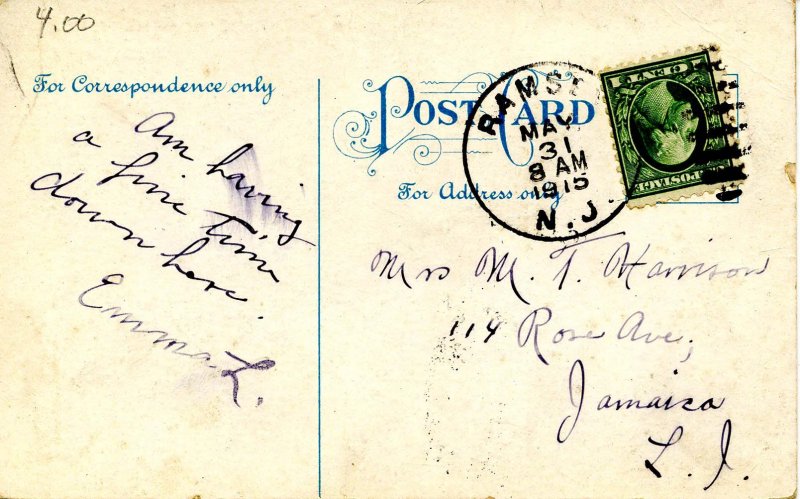 4.00
For Correspondence only
Am having
a fine time
down here.
Emma L.
POST CARD
For Address only
RAMSE
MAY
31
8 AM
1915
N.J.
CENTS
POSTAGE
Mrs M. T. Harrison
114 Rose Ave,
Jamaica
L. I.